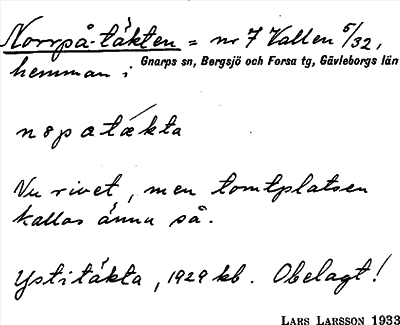 Norrpå-täkten = nr 7 Vallen 5/32,
hemman i Gnarps sn, Bergsjö och Forsa tg, Gävleborgs län
nopatækta
Nu rivet, men tomtplatsen
kallas ännu så.
Ystitäkta, 1929 kb. Obelagt!
LARS LARSSON 1933